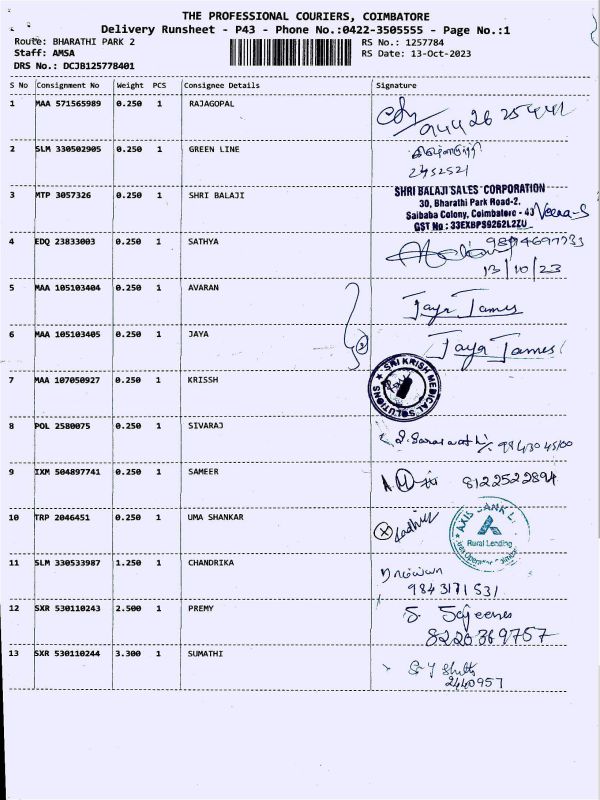 THE PROFESSIONAL COURIERS, COIMBATORE
Delivery Runsheet - P43 - Phone No.:0422-3505555 - Page No.:1
Route: BHARATHI PARK 2 RS No.: 1257784
Staff: AMSA RS Date: 13-Oct-2023
DRS No.: DCJB125778401
S No Consignment No Weight PCS Consignee Details Signature
1 MAA 571565989 0.250 1 RAJAGOPAL
2 SLM 330502905 0.250 1 GREEN LINE
2452521
3 MTP 3057326 0.250 1 SHRI BALAJI
SHRI BALAJI SALES CORPORATION
30, Bharathi Park Road-2,
Saibaba Colony, Coimbatore - 43
GST No : 33EXBPS9262L2ZU
4 EDQ 23833003 0.250 1 SATHYA
13/10/23
5 MAA 105103404 0.250 1 AVARAN
Jaya James
6 MAA 105103405 0.250 1 JAYA
Jaya James
7 MAA 107050927 0.250 1 KRISSH
SRI KRISH MEDICAL SOLUTIONS
8 POL 2580075 0.250 1 SIVARAJ
9 IXM 504897741 0.250 1 SAMEER
8122522894
10 TRP 2046451 0.250 1 UMA SHANKAR
AXIS BANK L
Rural Lending
11 SLM 330533987 1.250 1 CHANDRIKA
9843171531
12 SXR 530110243 2.500 1 PREMY
8220369757
13 SXR 530110244 3.300 1 SUMATHI
2440957